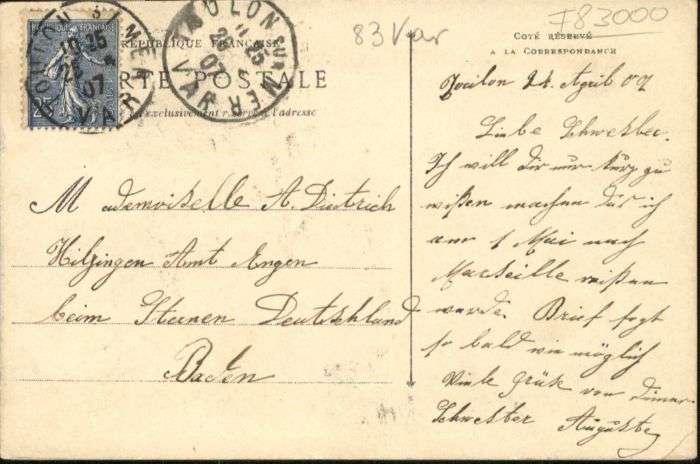 F83000
83 Var
RÉPUBLIQUE FRANÇAISE
CARTE POSTALE
exclusivement réservé à l'adresse
TOULON SUR MER
25
07
VAR
TOULON S MER
07
VAR
25
COTÉ RÉSERVÉ
A LA CORRESPONDANCE
Mademoiselle A. Dietrich
Hilzingen Amt Engen
beim Sternen Deutschland
Baden
Toulon 24. April 07
Liebe Schwester.
Ich will dir nur kurz zu
wißen machen daß ich
am 1 Mai nach
Marseille reißen
werde. Brief fogt
so bald wie möglich
Viele Grüße von deiner
Schwester Auguste